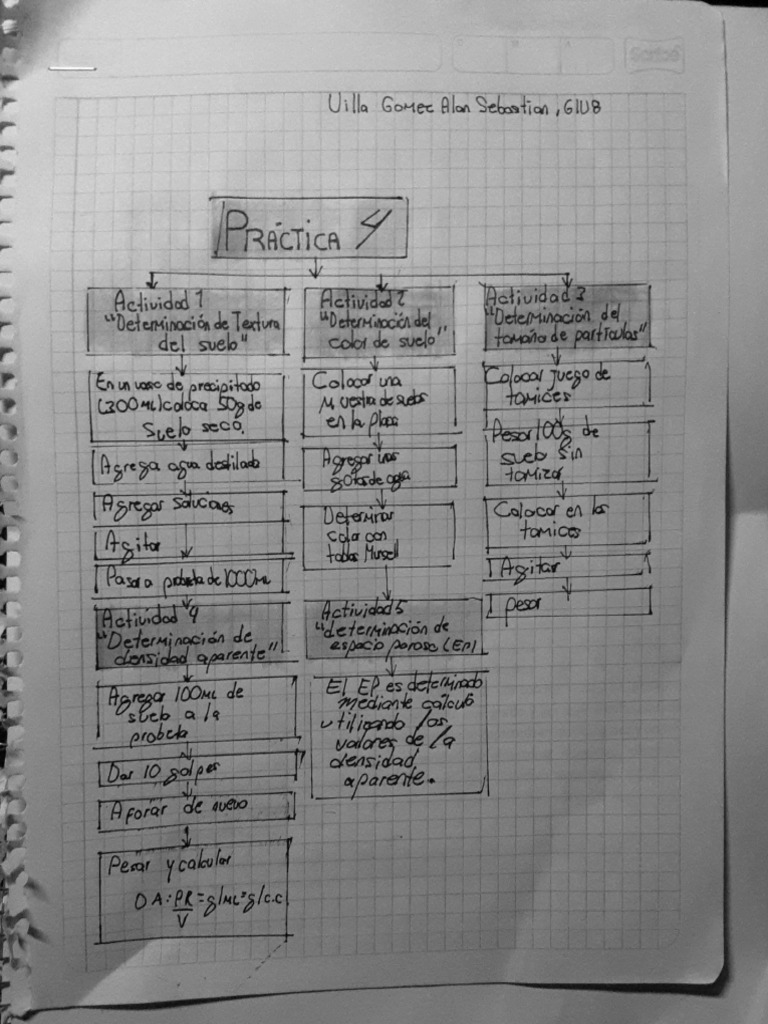 Scribe
Villa Gomez Alan Sebastian, G1UB
PRÁCTICA 4
Actividad 1
"Determinación de Textura
del suelo"
En un vaso de precipitado
(300 mL) coloca 50g de
suelo seco.
Agrega agua destilada
Agregar soluciones
Agitar
Pasar a probeta de 1000mL
Actividad 2
"Determinación del
color de suelo"
Colocar una
muestra de suelo
en la placa
Agregar unas
gotas de agua
Determinar
color con
tablas Munsell
Actividad 3
"Determinación del
tamaño de partículas"
Colocar juego de
tamices
Pesar 100g de
suelo sin
tamizar
Colocar en los
tamices
Agitar
pesar
Actividad 4
"Determinación de
densidad aparente"
Agregar 100mL de
suelo a la
probeta
Dar 10 golpes
Aforar de nuevo
Pesar y calcular
DA: PR/V = g/mL = g/c.c
Actividad 5
"determinación de
espacio poroso (EP)
El EP es determinado
mediante cálculo
utilizando los
valores de la
densidad
aparente.